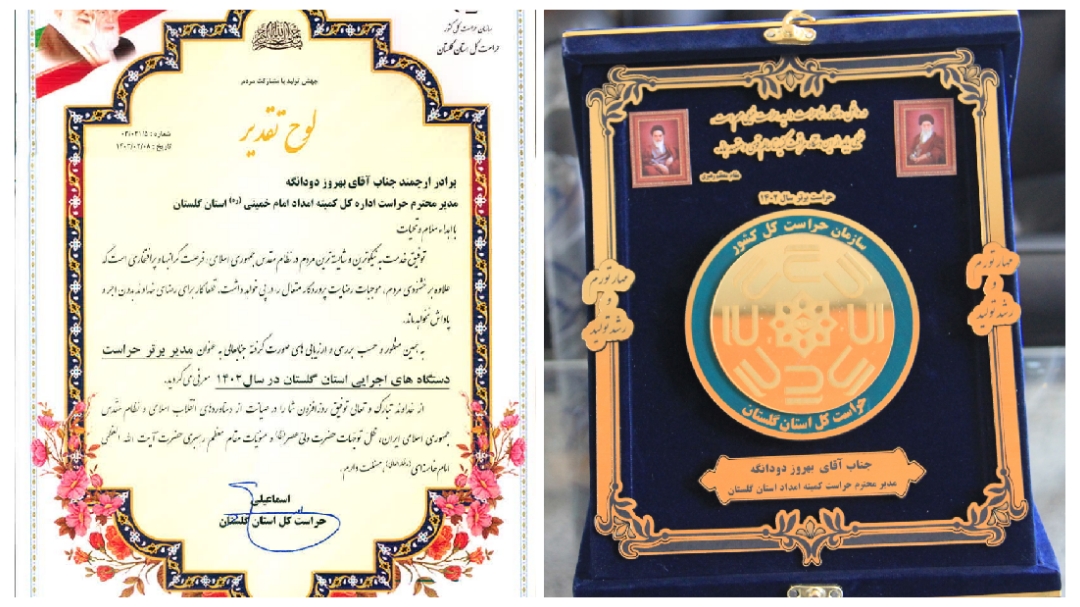 سازمان حراست کل کشور
حراست کل استان گلستان
جهش تولید با مشارکت مردم
لوح تقدیر
شماره :
تاریخ : ۱۴۰۳/۰۲/۰۸
برادر ارجمند جناب آقای بهروز دودانگه
مدیر محترم حراست اداره کل کمیته امداد امام خمینی (ره) استان گلستان
با اهداء سلام و تحیات
توفیق خدمت به نیکوترین و شایسته ترین مردم در نظام مقدس جمهوری اسلامی، فرصت گرانبها و پرافتخاری است که
علاوه بر خشنودی مردم، موجبات رضایت پروردگار متعال را در پی خواهد داشت. قطعا کار برای رضای خداوند بدون اجر و
پاداش نخواهد ماند.
به همین منظور و حسب بررسی و ارزیابی های صورت گرفته جنابعالی به عنوان مدیر برتر حراست
دستگاه های اجرایی استان گلستان در سال ۱۴۰۲ معرفی می گردید.
از خداوند تبارک و تعالی توفیق روزافزون شما را در صیانت از دستاوردهای انقلاب اسلامی و نظام مقدس
جمهوری اسلامی ایران، ظل توجهات حضرت ولی عصر (عج) و منویات مقام معظم رهبری حضرت آیت الله العظمی
امام خامنه ای مسئلت دارم.
اسماعیلی
حراست کل استان گلستان
مقام معظم رهبری
حراست برتر سال ۱۴۰۲
سازمان حراست کل کشور
حراست کل استان گلستان
مهار تورم
و
رشد تولید
مهار تورم
و
رشد تولید
جناب آقای بهروز دودانگه
مدیر محترم حراست کمیته امداد استان گلستان